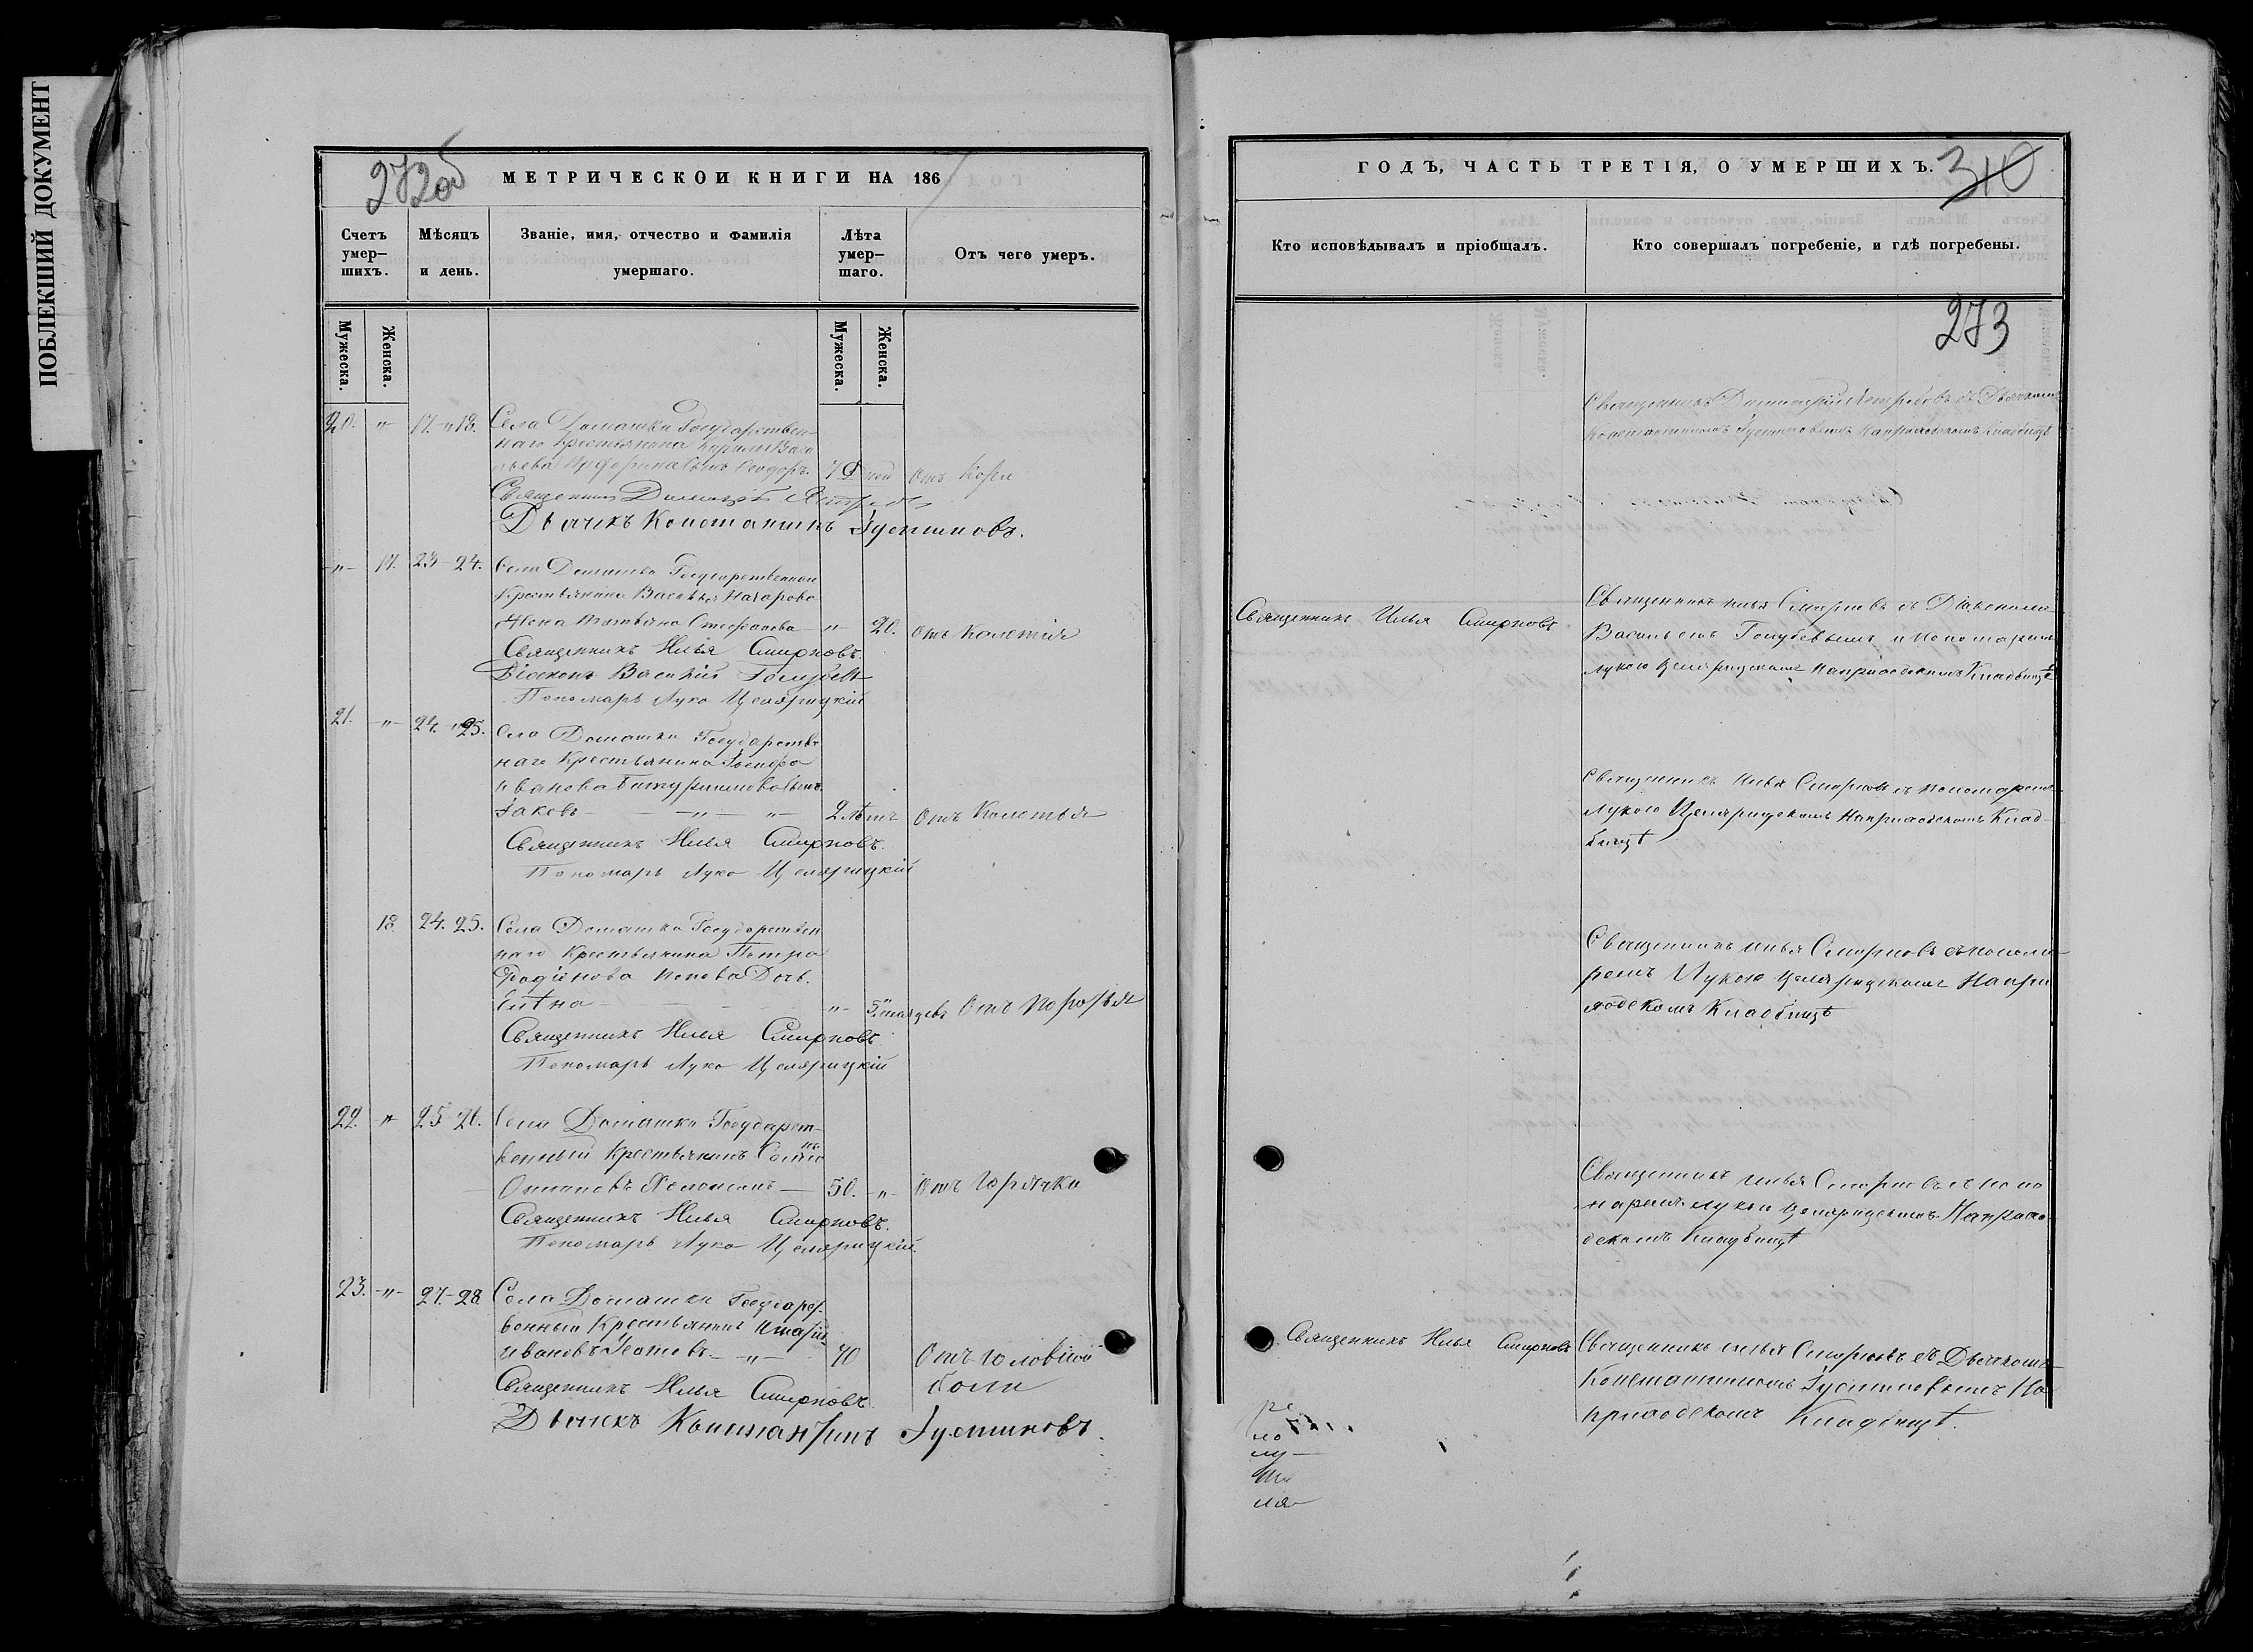 ПОБЛЕКШИЙ ДОКУМЕНТ
272об
МЕТРИЧЕСКОЙ КНИГИ НА 186
Счетъ умер–шихъ.
Мѣсяцъ и день.
Званіе, имя, отчество и фамилія умершаго.
Лѣта умер–шаго.
Отъ чего умеръ.
Мужеска.
Женска.
Мужеска.
Женска.
20. " 17. 18. Села Домашки Государствен-
наго Крестьянина
сынъ Ѳеодоръ. 7 Дней Отъ Кори
Священникъ Димитрій
Дьячекъ Константинъ Іустиновъ.
" 17. 23 24. Села Домашки Государственнаго
Крестьянина Василья Назарова
Жена Татьяна Стефанова " 20. Отъ Колотія
Священникъ Илья Смирновъ
Діаконъ Василій Голубевъ
Пономарь Лука Целярицкій
21. " 24. 25. Села Домашки Государствен
наго Крестьянина
Иванова сынъ
Іаковъ " " 2 лѣтъ Отъ Колотья
Священникъ Илья Смирновъ.
Пономарь Лука Целярицкій
18. 24. 25. Села Домашки Государствен
наго Крестьянина Петра
Родіонова Попова Дочь.
Елѣна " 5 мѣсяцевъ Отъ
Священникъ Илья Смирновъ
Пономарь Лука Целярицкій
22. " 25 26. Села Домашки Государст-
венный Крестьянинъ
50. " Отъ Горячки
Священникъ Илья Смирновъ.
Пономарь Лука Целярицкій.
23. " 27. 28 Села Домашки Государст-
венный Крестьянинъ
Ивановъ " 40 Отъ головной
боли
Священникъ Илья Смирновъ
Дьячекъ Константинъ Іустиновъ.
ГОДЪ, ЧАСТЬ ТРЕТІЯ, О УМЕРШИХЪ.
310
Кто исповѣдывалъ и пріобщалъ.
Кто совершалъ погребеніе, и гдѣ погребены.
273
Священникъ Димитрій съ Дьячкомъ
Константиномъ Іустиновымъ Наприходскомъ Кладбищѣ
Священникъ Илья Смирновъ
Священникъ Илья Смирновъ съ Діакономъ
Васильемъ Голубевымъ и пономаремъ
Лукою Целярицкимъ Наприходскомъ Кладбищѣ
Священникъ Илья Смирновъ съ пономаремъ
Лукою Целярицкимъ Наприходскомъ Клад-
бищѣ
Священникъ Илья Смирновъ съ понома-
ремъ Лукою Целярицкимъ Напри
ходскомъ Кладбищѣ
Священникъ Илья Смирновъ съ поно
маремъ Лукою Целярицкимъ Наприхо-
дскомъ Кладбищѣ
Священникъ Илья Смирновъ
Священникъ Илья Смирновъ съ Дьячкомъ
Константиномъ Іустиновымъ На
приходскомъ Кладбищѣ.